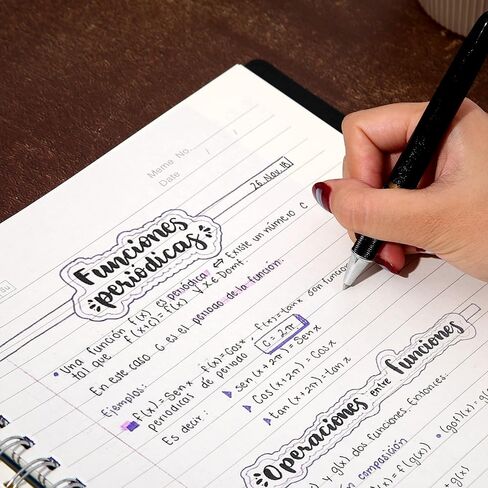 Meme No.
Date / /
26 Nov 18
Funciones
periódicas
• Una función f(x) es periódica ⇔ Existe un número C
tal que f(x+C)=f(x) ∀ x∈Domf.
En este caso C es el periodo de la función.
Ejemplos:
f(x)=Senx, f(x)=Cosx, f(x)=tanx son fun
periódicas de periodo C=2π.
Es decir:
▸ sen(x+2π)=Senx
▸ Cos(x+2π)=Cosx
▸ tan(x+2π)=tanx
Operaciones entre funciones
y g(x) dos funciones. Entonces:
composición
= f(g(x)) • (gof)(x)=g(